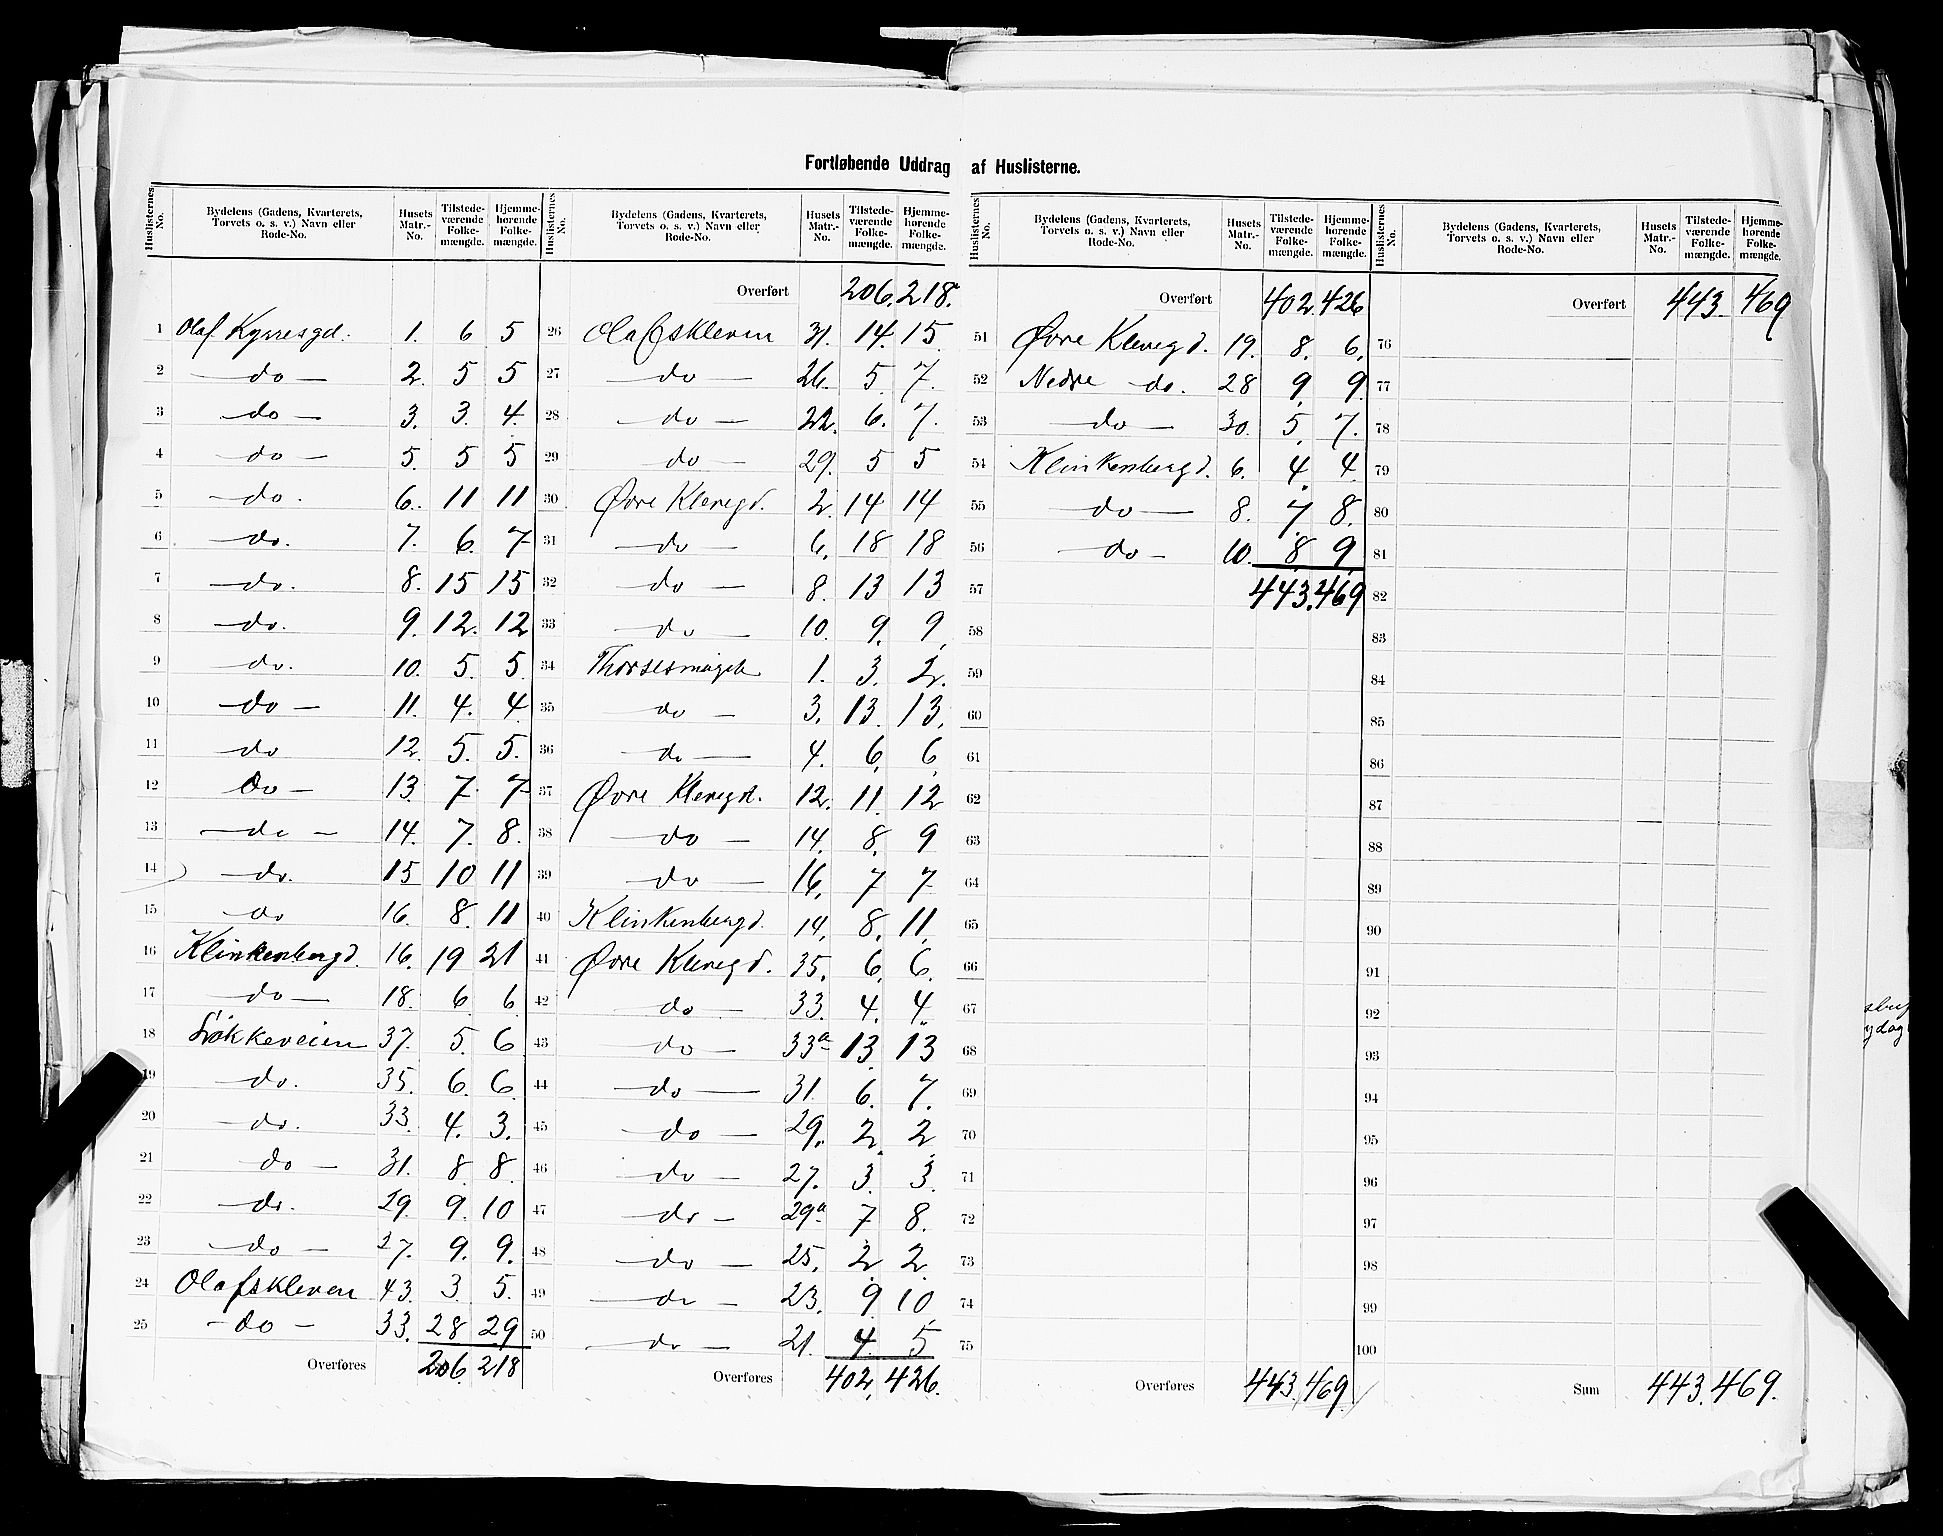 Fortløbende Uddrag af Huslisterne.
Huslisternes No. Bydelens (Gadens, Kvarterets, Torvets o. s. v.) Navn eller Rode-No. Husets Matr.-No. Tilstede-værende Folke-mængde. Hjemme-hørende Folke-mængde.
1 Olaf Kyrresgd. 1. 6 5
2 do 2. 5 5
3 do 3. 3. 4.
4 do 5. 5 5
5 do. 6. 11 11
6 do. 7. 6. 7
7 do. 8. 15 15
8 do. 9. 12. 12
9 do. 10. 5. 5.
10 do 11. 4. 4
11 do 12. 5. 5.
12 do 13. 7. 7
13 do 14. 7. 8.
14 do. 15 10 11
15 do 16. 8. 11
16 Klinkenbergd. 16. 19 21
17 do 18. 6 6
18 Løkkeveien 37. 5. 6
19 do. 35. 6. 6.
20 do. 33. 4. 3.
21 do 31. 8. 8.
22 do. 29. 9. 10
23 do 27. 9. 9.
24 Olafskleven 43. 3. 5.
25 do 33. 28 29
Overføres 206. 218
Huslisternes No. Bydelens (Gadens, Kvarterets, Torvets o. s. v.) Navn eller Rode-No. Husets Matr.-No. Tilstede-værende Folke-mængde. Hjemme-hørende Folke-mængde.
Overført 206. 218.
26 Olafskleven 31. 14. 15.
27 do 26. 5. 7.
28 do 22. 6. 7.
29 do 29. 5 5
30 Øvre Klevegd. 2. 14 14
31 do 6. 18 18
32 do 8. 13 13
33 do 10. 9. 9
34 1. 3. 2.
35 do 3. 13. 13.
36 do 4. 6 6
37 Øvre Klevegd. 12. 11. 12
38 do 14. 8. 9
39 do 16. 7 7
40 Klinkenbergd. 14. 8. 11.
41 Øvre Klevegd. 35. 6. 6.
42 do 33. 4. 4.
43 do 33a 13. 13
44 do 31. 6. 7.
45 do 29. 2. 2
46 do 27. 3. 3.
47 do 29a 7 8.
48 do 25. 2 2.
49 do 23. 9. 10.
50 do 21. 4. 5
Overføres 402. 426.
Huslisternes No. Bydelens (Gadens, Kvarterets, Torvets o. s. v.) Navn eller Rode-No. Husets Matr.-No. Tilstede-værende Folke-mængde. Hjemme-hørende Folke-mængde.
Overført 402. 426
51 Øvre Klevegd. 19. 8. 6.
52 Nedre do. 28 9. 9.
53 do 30. 5. 7.
54 Klinkenbergd. 6. 4. 4.
55 do 8. 7. 8.
56 do 10. 8 9
57 443. 469
58
59
60
61
62
63
64
65
66
67
68
69
70
71
72
73
74
75
Overføres 443. 469.
Huslisternes No. Bydelens (Gadens, Kvarterets, Torvets o. s. v.) Navn eller Rode-No. Husets Matr.-No. Tilstede-værende Folke-mængde. Hjemme-hørende Folke-mængde.
Overført 443. 469
76
77
78
79
80
81
82
83
84
85
86
87
88
89
90
91
92
93
94
95
96
97
98
99
100
Sum 443. 469.